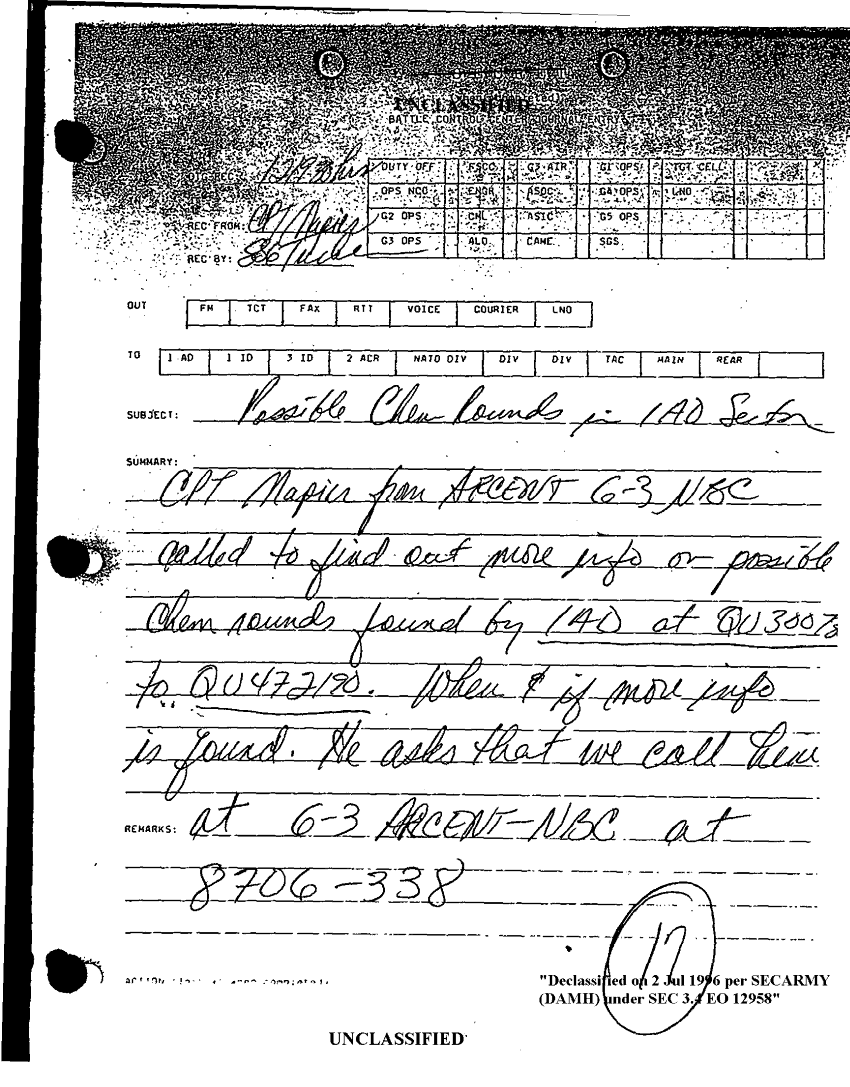 UNCLASSIFIED
BATTLE CONTROL CENTER JOURNAL ENTRY
hrs
DUTY OFF FSCC G3 AIR G1 OPS TGT CELL
OPS NCO ENGR ASOC G4 OPS LNO
REC FROM: CPT Napier G2 OPS CML ASIC G5 OPS
REC BY: G3 OPS ALO CAME SGS
OUT FM TCT FAX RTT VOICE COURIER LNO
TO 1 AD 1 ID 3 ID 2 ACR NATO DIV DIV DIV TAC MAIN REAR
SUBJECT: Possible Chem Rounds in 1AD Sector
SUMMARY:
CPT Napier from ARCENT G-3 NBC
called to find out more info on possible
Chem rounds found by 1AD at QU3007
to QU472190. When & if more info
is found. He asks that we call him
REMARKS: at G-3 ARCENT-NBC at
8706-338
17
"Declassified on 2 Jul 1996 per SECARMY
(DAMH) under SEC 3.4 EO 12958"
UNCLASSIFIED